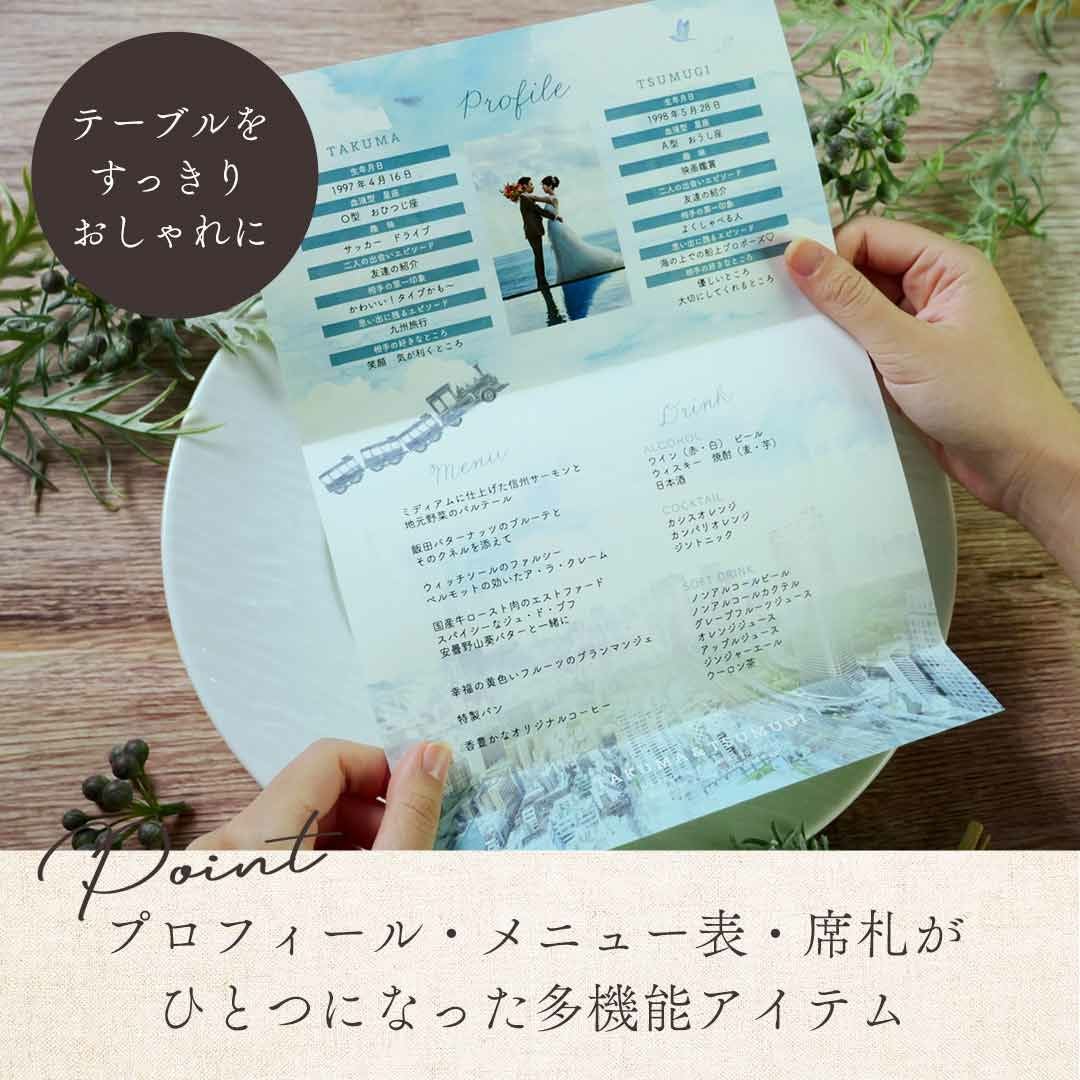 テーブルを
すっきり
おしゃれに
Profile
TAKUMA
生年月日
1997年4月16日
血液型 星座
O型 おひつじ座
趣味
サッカー ドライブ
二人の出会いエピソード
友達の紹介
相手の第一印象
かわいい！タイプかも〜
思い出に残るエピソード
九州旅行
相手の好きなところ
笑顔 気が利くところ
TSUMUGI
生年月日
1998年5月28日
血液型 星座
A型 おうし座
趣味
映画鑑賞
二人の出会いエピソード
友達の紹介
相手の第一印象
よくしゃべる人
思い出に残るエピソード
海の上での船上プロポーズ♡
相手の好きなところ
優しいところ
大切にしてくれるところ
Menu
ミディアムに仕上げた信州サーモンと
地元野菜のバルテール
飯田バターナッツのブルーテと
そのクネルを添えて
ウィッチソールのファルシー
ベルモットの効いたア・ラ・クレーム
国産牛ロースト肉のエストファード
スパイシーなジュ・ド・ブフ
安曇野山葵バターと一緒に
幸福の黄色いフルーツのブランマンジェ
特製パン
香豊かなオリジナルコーヒー
Drink
ALCOHOL
ワイン（赤・白） ビール
ウィスキー 焼酎（麦・芋）
日本酒
COCKTAIL
カシスオレンジ
カンパリオレンジ
ジントニック
SOFT DRINK
ノンアルコールビール
ノンアルコールカクテル
グレープフルーツジュース
オレンジジュース
アップルジュース
ジンジャーエール
ウーロン茶
TAKUMA&TSUMUGI
Point
プロフィール・メニュー表・席札が
ひとつになった多機能アイテム